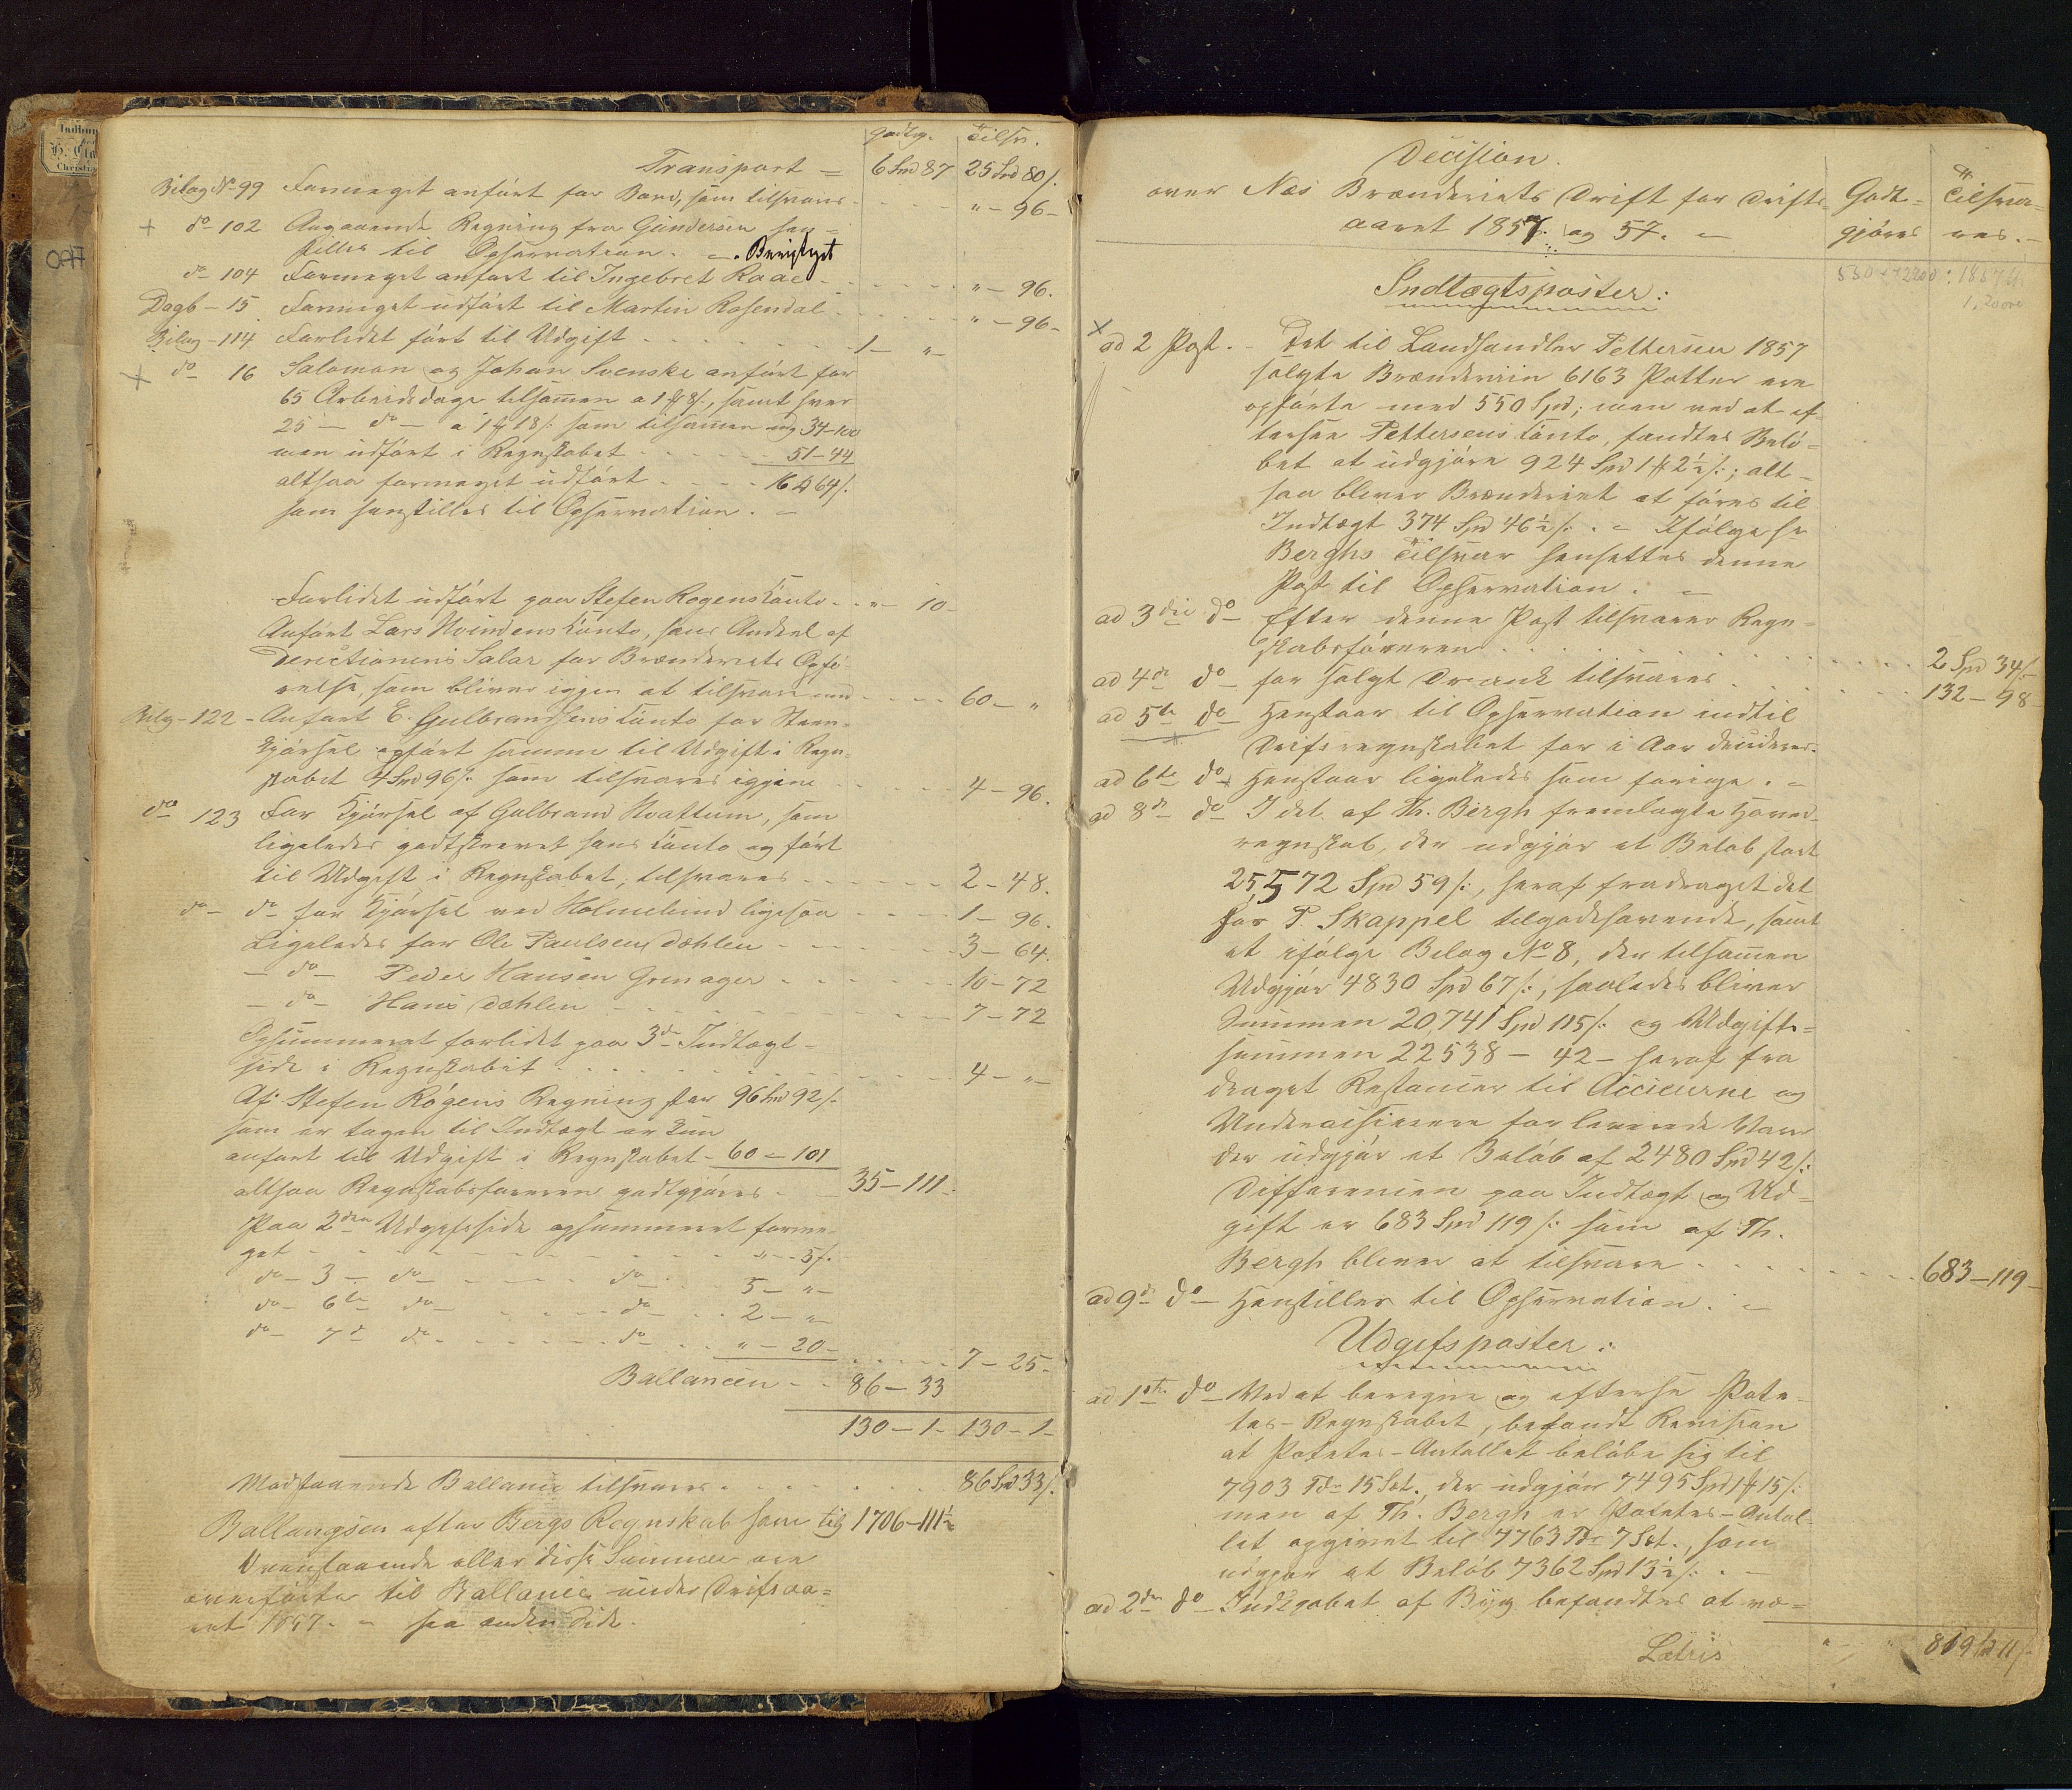 Godtg. Tilsv.
Transport = 6 Spd 87 25 Spd 80 /.
Bilag No 99 Formeget anført for Bord, som tilsvares - - - " - 96 -
+ do 102 Angaaende Regning fra Gundersen hen=
stilles til Observation. - . Berigtiget
do - 104 Formeget anført til Ingebret Raae - - - - " - 96.
Dagb - 15 Formeget udført til Martin Rosendal - - - " - 96 -
Bilag - 114 Forlidet ført til Udgift - - - - - - 1 - " -
+ do 16 Salomon og Johan Svenske anført for
65 Arbeidsdage tilsammen a 1 ₰ 8 /., samt hver
25 - do - a 1 ₰ 18 /. som tilsammen 34 - 100
men udført i Regnskabet - - - - - 51 - 44
altsaa formeget udført - - - - 16 64 /.
som henstilles til Observation. -
Forlidet udført paa Stefen Rogens Conto - - " - 10 -
Anført Lars Hvindens Conto, hans Andeel af
Directionens Salar for Brænderiets Opfø-
relse, som bliver igjen at tilsvare med - - - - 60 - "
Bilg - 122 - Anført E. Gulbrandsens Conto for Steen-
kjørsel opført samme til Udgift i Regn-
skabet 4 Spd 96 /. som tilsvares igjen - - - - 4 - 96.
do 123 For Kjørsel af Gulbrand Hvattum, som
ligeledes godtskrevet hans Conto og ført
til Udgift i Regnskabet, tilsvares - - - - - 2 - 48.
do - do for Kjørsel ved Holmelund ligesaa - - - - 1 - 96.
Ligeledes for Ole Paulsen Dæhlen - - - - - 3 - 64.
- do - Peder Hansen Grenager - - - - - 10 - 72
- do - Hans Dæhlen - - - - - - - 7 - 72
Opsummeret forlidet paa 3die Indtægt-
side i Regnskabet - - - - - - - - 4 - " -
Af Stefen Rogens Regning stor 96 Spd 92 /.
som er tagen til Indtægt er kun
anført til Udgift i Regnskabet - 60 - 101
altsaa Regnskabsføreren godtgjøres - - 35 - 111.
Paa 2den Udgiftsside opsummeret forme-
get - - - - - - - - - " - 5 /.
do - 3 - do - - - - - do - - - 5 - " -
do - 6te do - - - - - do - - - 2 - " -
do - 7de do - - - - - do - - - " - 20 - - - - - 7 - 25 -
Ballancen - - 86 - 33
130 - 1 - 130 - 1 -
Modstaaende Ballance tilsvares - - - - - - 86 Spd 33 /.
Ballangsen efter Bergs Regnskab 1706 - 111½
Ovenstaaende eller disse Summer ere
overførte til Ballance under Driftsaa=
ret 1857. - see anden Side.
Decision.
over Næs Brænderiets Drift for Drifts= Godt= Tilsva=
aaret 1857. og 57. - gjøres res. -
Indtægtsposter:
x ad 2 Post. - Det til Landhandler Pettersen 1857
solgte Brændeviin 6163 Potter ere
opførte med 550 Spd; men ved at ef
tersee Pettersens Conto, fandtes Belø-
bet at udgjøre 924 Spd 1 ₰ 2½ /.; alt-
saa bliver Brænderiet at føres til
Indtægt 374 Spd 46½ /. . - Ifølge hr
Berghs Tilsvar hensettes denne
Post til Observation. -
ad 3die do - Efter denne Post tilsvarer Regn-
skabsføreren - - - - - - 2 Spd 34 /.
ad 4de do - for solgt Drank tilsvares - - - - 132 - 98
ad 5te do - Henstaar til Observation indtil
Driftsregnskabet for i Aar decideres.
ad 6te do - Henstaar ligeledes som forrige. -
ad 8de - do - I det af Th. Bergh fremlagte Hoved-
regnskab, der udgjør et Beløb stort
25,572 Spd 59 /., heraf fradraget det
for P. Skappel tilgodehavende, samt
et ifølge Bilag No 8, der tilsammen
Udgjør 4830 Spd 67 /., saaledes bliver
Summen 20,741 Spd 115 /. og Udgifts=
summen 22538 - 42 - heraf fra
draget Restancer til og
for leverede Varer
der udgjør et Beløb af 2480 Spd 42 /.
Differencen paa Indtægt og Ud=
gift er 683 Spd 119 /. som af Th.
Bergh bliver at tilsvare - - - - - - 683 - 119 -
ad 9de do - Henstilles til Observation. -
Udgiftsposter:
ad 1ste do - Ved at beregne og eftersee Pote-
tes - Regnskabet, befandt Revision
at Potetes - Antallet beløbe sig til
7903 Tdr 15 Set., der udgjør 7495 Spd 1 ₰ 15 /.
men af Th. Bergh er Potetes - Antal-
let opgivet til 7763 Tdr 7 Set., som
udgjør et Beløb 7362 Spd 13½ /. . -
ad 2den do - Indkjøbet af Byg befandtes at væ=
Latris " - " 819 11 /.